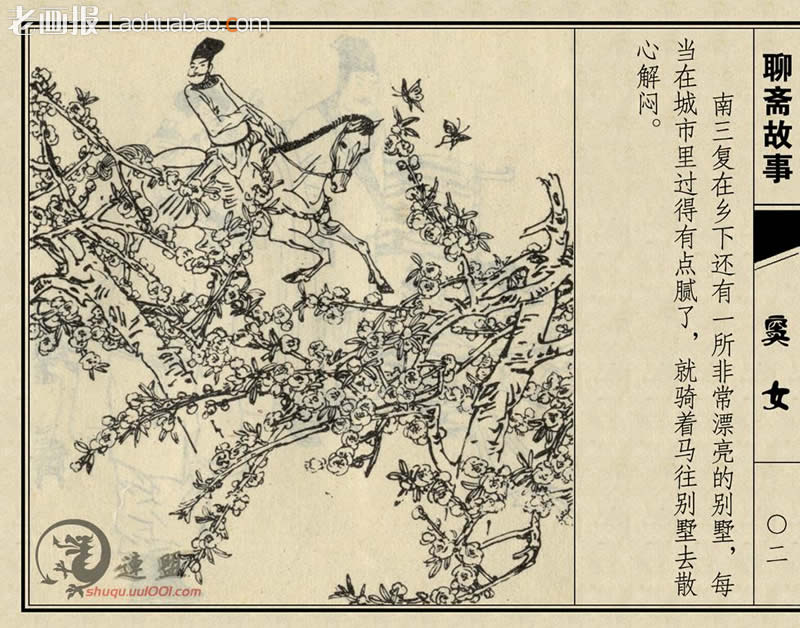 老画报 Laohuabao.com
聊斋故事
窦女
〇二
南三复在乡下还有一所非常漂亮的别墅，每
当在城市里过得有点腻了，就骑着马往别墅去散
心解闷。
連盟
shuqu.uu1001.com